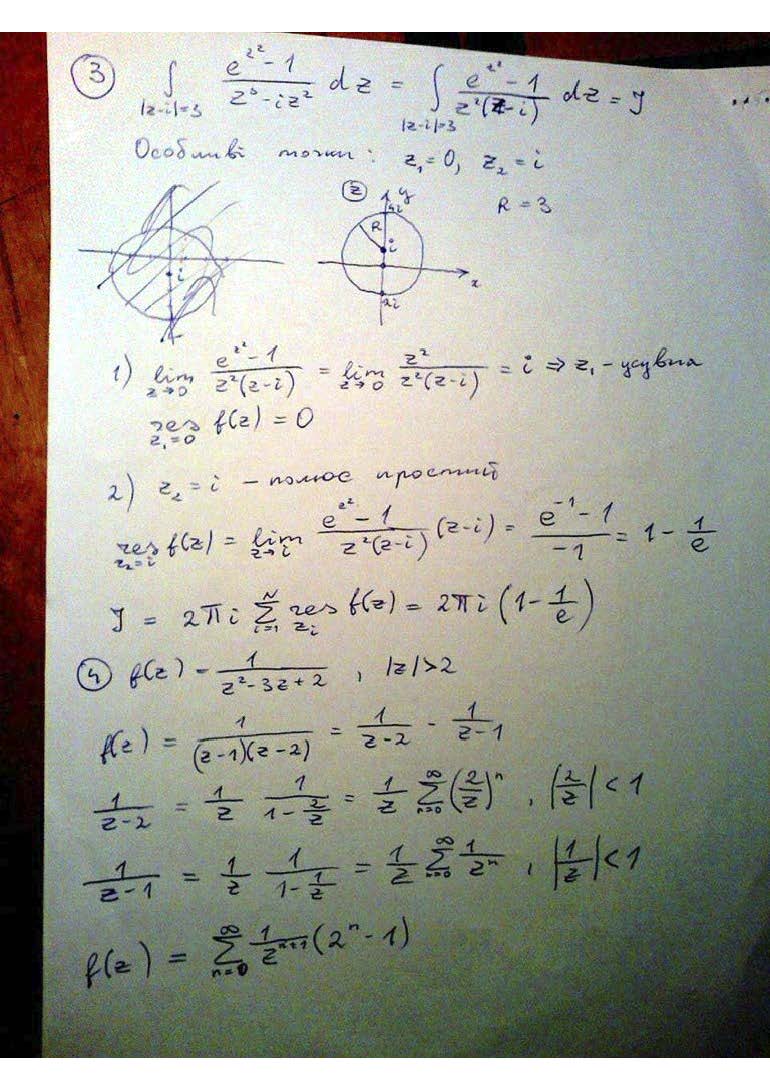 ③ ∫_{|z-i|=3} (e^{z²} - 1)/(z³ - iz²) dz = ∫_{|z-i|=3} (e^{z²} - 1)/(z²(z-i)) dz = J ...
Особливі точки: z₁=0, z₂=i
R = 3
i
z y 4i R i x 2i
1) lim_{z→0} (e^{z²} - 1)/(z²(z-i)) = lim_{z→0} z²/(z²(z-i)) = i ⇒ z₁ - усувна
res_{z₁=0} f(z) = 0
2) z₂ = i - полюс простий
res_{z₂=i} f(z) = lim_{z→i} (e^{z²} - 1)/(z²(z-i)) (z-i) = (e^{-1} - 1)/(-1) = 1 - 1/e
J = 2πi ∑_{i=1}^{N} res_{z_i} f(z) = 2πi (1 - 1/e)
④ f(z) = 1/(z² - 3z + 2), |z|>2
f(z) = 1/((z-1)(z-2)) = 1/(z-2) - 1/(z-1)
1/(z-2) = 1/z 1/(1 - 2/z) = 1/z ∑_{n=0}^{∞} (2/z)^n, |2/z| < 1
1/(z-1) = 1/z 1/(1 - 1/z) = 1/z ∑_{n=0}^{∞} 1/z^n, |1/z| < 1
f(z) = ∑_{n=0}^{∞} 1/z^{n+1} (2^n - 1)